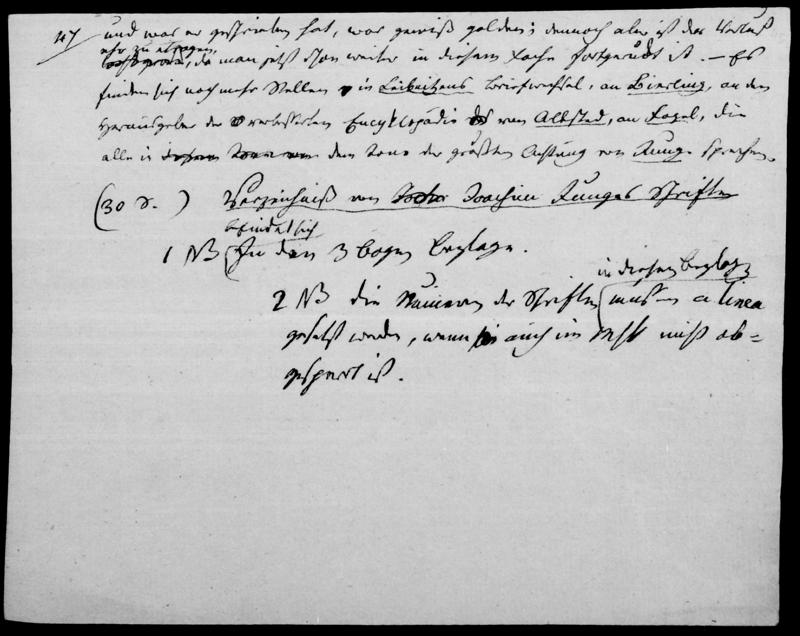 47
und was er geschrieben hat, war gewiß golden; dennoch aber ist der Verlust
ehr zu ertragen,
da man jetzt schon weiter in diesem Fache fortgerückt ist. — Es
finden sich noch mehr Stellen in Leibnitzens Briefwechsel, an Bierling, an den
Herausgeber der verbesserten Encyklopädie von Allsted, an Fogel, die
alle in dem Tone der größten Achtung von Junge sprechen.
(30 S. ) Verzeichniß von Joachim Junges Schriften
befindet sich
1 NB In den 3 bogen beylage.
in diesen beylagen
2 NB die Numern der Schriften müssen a linea
gesetzt werden, wenn sie auch im Mst nicht ab=
gesperrt ist.